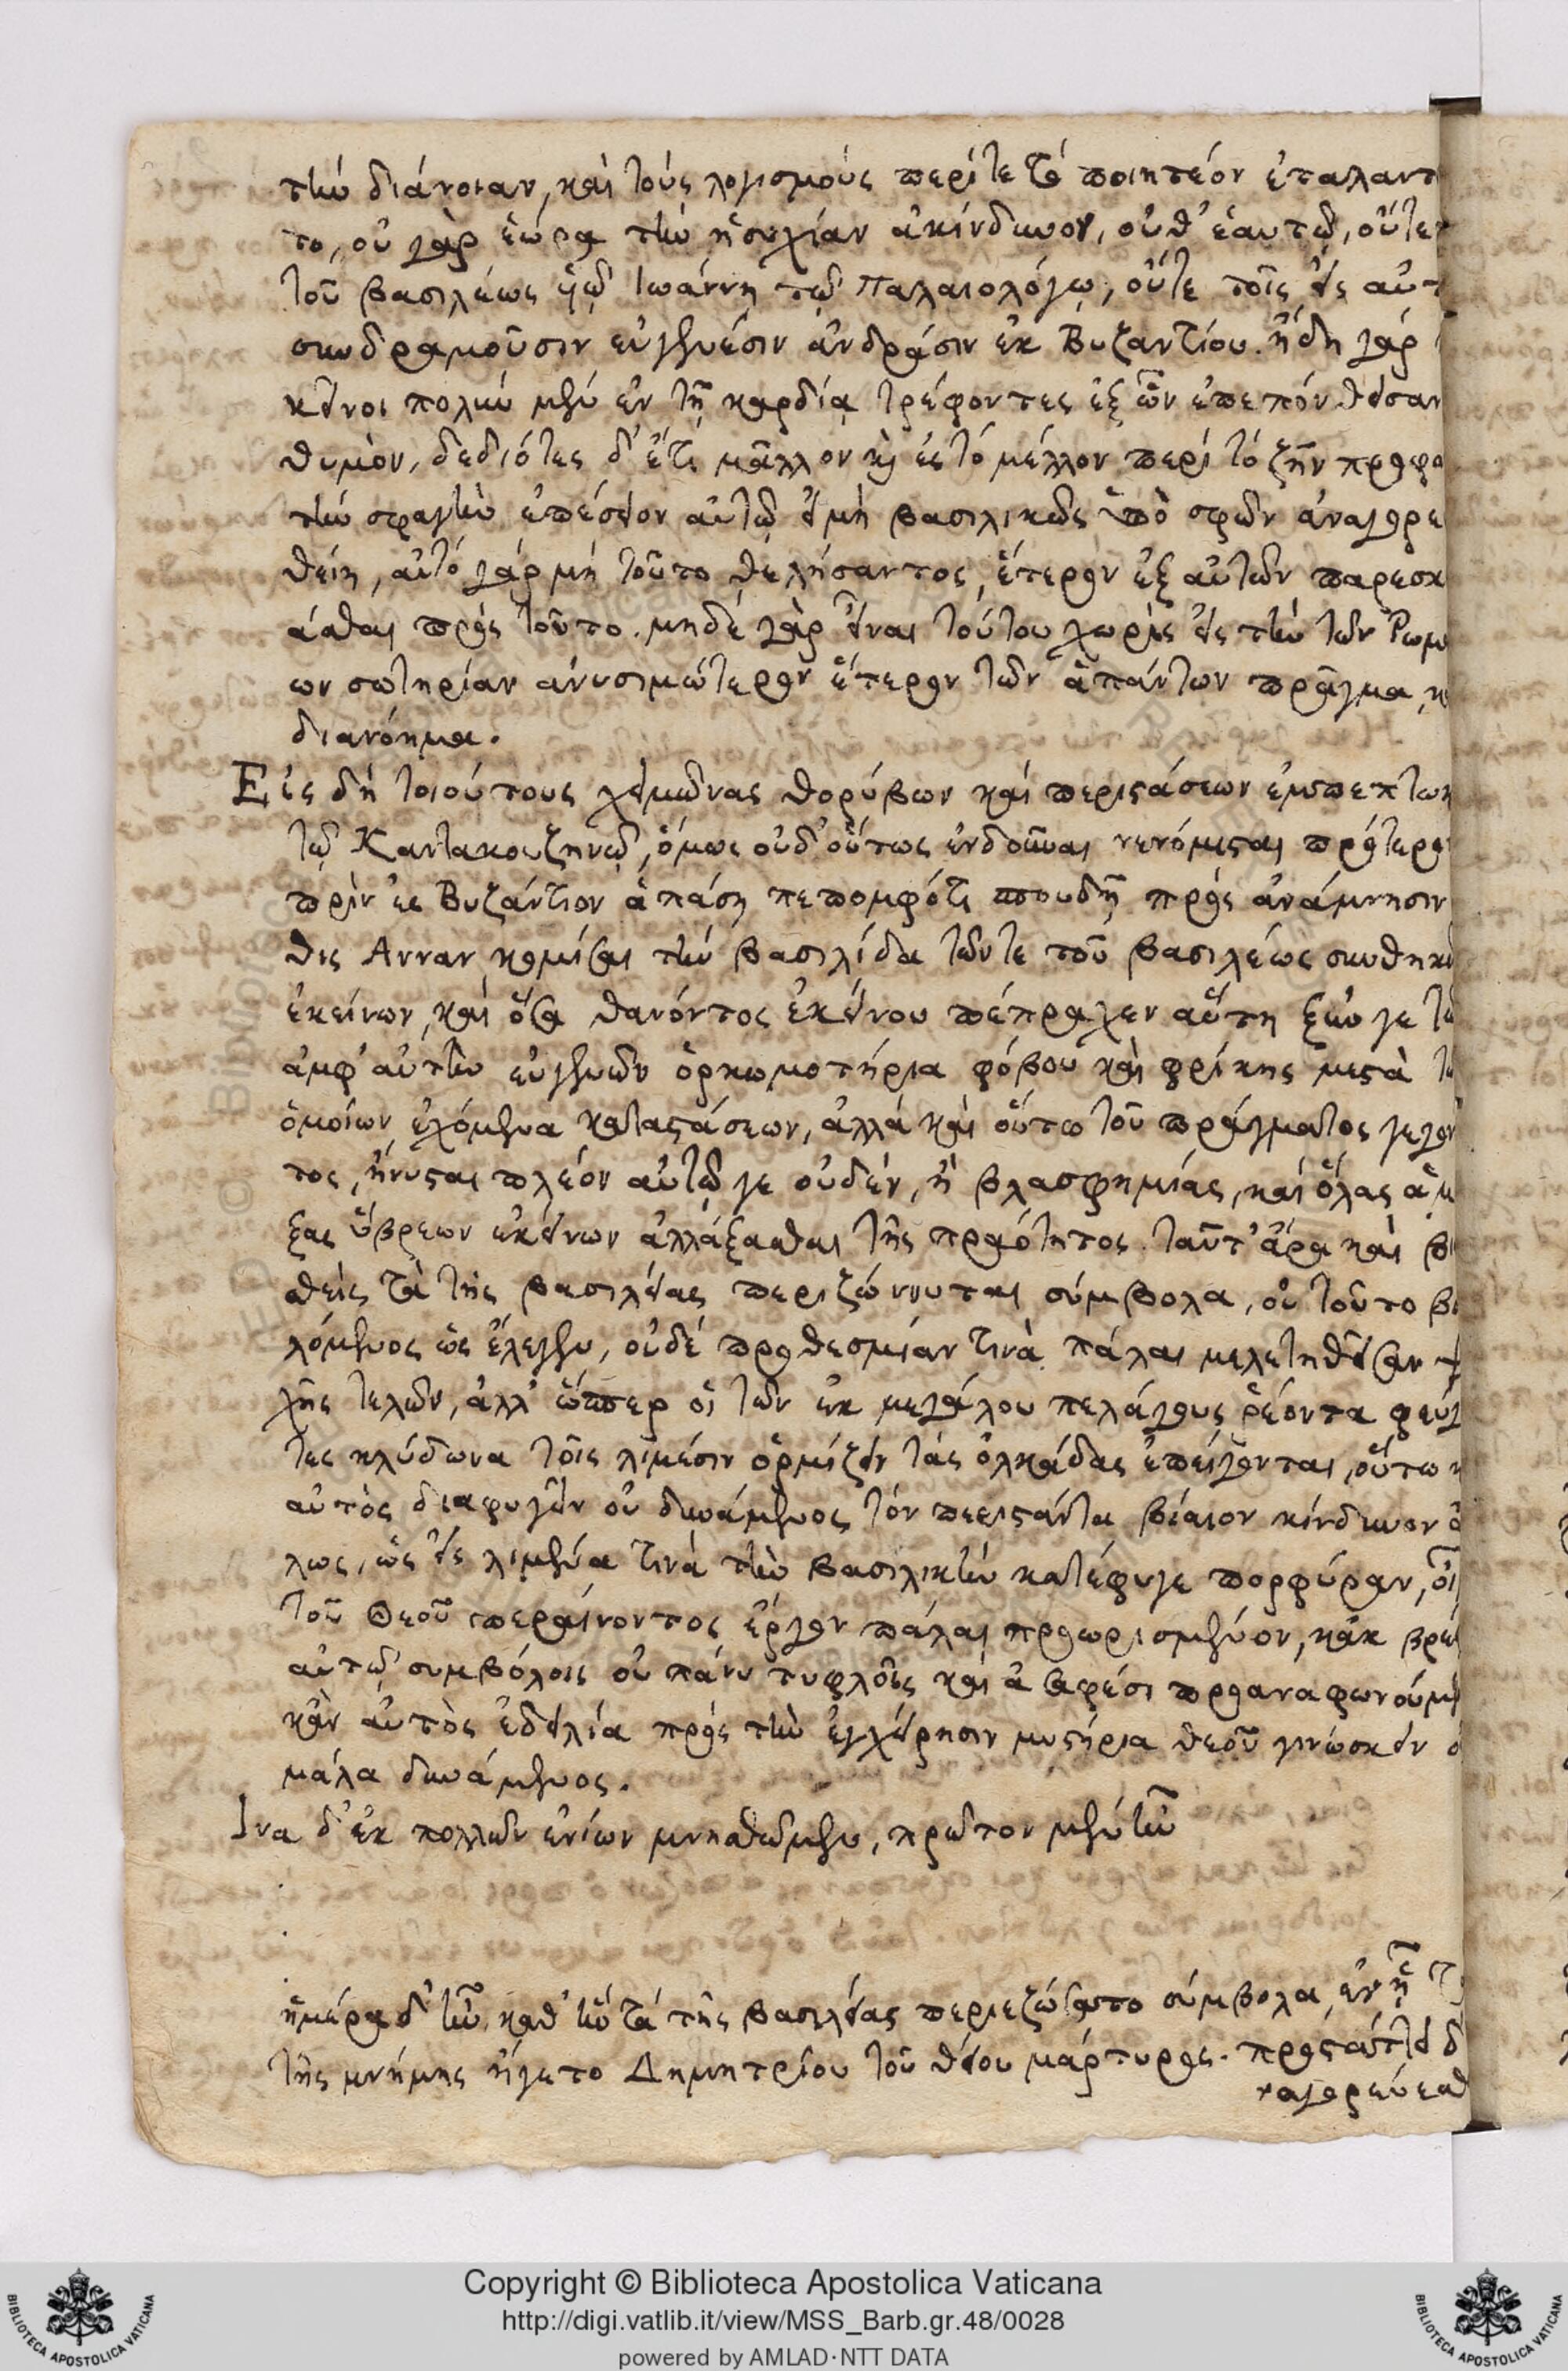 τὴν διάνοιαν, καὶ τοὺς λογισμοὺς περί τε τὸ ποιητέον ἐταλαντ
το, οὐ γὰρ ἑώρα τὴν ἡσυχίαν ἀκίνδυνον, οὔθ' ἑαυτῷ, οὔτε
τοῦ βασιλέως υἱῷ Ἰωάννῃ τῷ Παλαιολόγῳ, οὔτε τοῖς εἰς αὐτ
συνδραμοῦσιν εὐγενέσιν ἀνδράσιν ἐκ Βυζαντίου. ἤδη γὰρ
κεῖνοι πολὺν μὲν ἐν τῇ καρδίᾳ τρέφοντες ἐξ ὧν ἐπεπόνθεσαν
θυμὸν, δεδιότες δ' ἔτι μᾶλλον καὶ ἐς τὸ μέλλον περὶ τὸ ζῆν
τὴν σφαγὴν ἐπέσειον αὐτῷ εἰ μὴ βασιλικῶς ὑπὸ σφῶν ἀναγορε
θείη, αὐτὸ γὰρ μὴ τοῦτο θελήσαντος, ἕτερον ἐξ αὐτῶν παρεσκ
άσθαι πρὸς τοῦτο. μηδὲ γὰρ εἶναι τούτου χωρὶς εἰς τὴν τῶν Ῥωμ
ων σωτηρίαν ἀνυσιμώτερον ἕτερον τῶν ἁπάντων πρᾶγμα, κ
διανόημα.
Εἰς δὴ τοιούτους χειμῶνας θορύβων καὶ περιστάσεων ἐμπεπτωκ
τῷ Καντακουζηνῷ, ὅμως οὐδ' οὕτως ἐνδοῦναι νενόμισται πρότερον
πρὶν ἐς Βυζάντιον ἁπάσῃ πεπομφότι σπουδῇ πρὸς ἀνάμνησιν
θις Ἄνναν κομίσαι τὴν βασιλίδα τῶν τε τοῦ βασιλέως συνθηκῶ
ἐκείνων, καὶ ὅσα θανόντος ἐκείνου πέπραχεν αὕτη ξύν γε το
ἀμφ' αὐτὴν εὐγενῶν ὁρκωμοτήρια φόβου καὶ φρίκης μεστὰ τ
ὁμοίων ἐχόμενα καταστάσεων, ἀλλὰ καὶ οὕτω τοῦ πράγματος γεγον
τος, ἤνυσται πλέον αὐτῷ γε οὐδὲν, ἢ βλασφημίας, καὶ ὅλας ἁμ
ξας ὕβρεων ἐκείνων ἀλλάξασθαι τῆς πραότητος. ταῦτ' ἄρα καὶ βι
σθεὶς τὰ τῆς βασιλείας περιζώννυται σύμβολα, οὐ τοῦτο βο
λόμενος ὡς ἔλεγεν, οὐδὲ προθεσμίαν τινὰ πάλαι μελετηθεῖσαν
χῆς τελῶν, ἀλλ' ὥσπερ οἱ τῶν ἐκ μεγάλου πελάγους ῥέοντα φεύγ
τες κλύδωνα τοῖς λιμέσιν ὁρμίζειν τὰς ὁλκάδας ἐπείγονται, οὕτω κ
αὐτὸς διαφυγεῖν οὐ δυνάμενος τὸν περιστάντα βίαιον κίνδυνον ἄ
λως, ὡς εἰς λιμένα τινὰ τὴν βασιλικὴν κατέφυγε πορφύραν,
τοῦ Θεοῦ περαίνοντος ἔργον πάλαι προωρισμένον, κἀκ βρέφ
αὐτῷ συμβόλοις οὐ πάνυ τυφλοῖς καὶ ἀσαφέσι προαναφωνούμεν
κἂν αὐτὸς ἐδειλία πρὸς τὴν ἐγχείρησιν μυστήρια θεοῦ γινώσκειν ο
μάλα δυνάμενος.
Ἵνα δ' ἐκ πολλῶν ἐνίων μνησθῶμεν, πρῶτον μὲν ἦν
ἡμέρα δ' ἦν, καθ' ἣν τὰ τῆς βασιλείας περιεζώσατο σύμβολα, ἐν ᾗ τὰ
τῆς μνήμης ἤγετο Δημητρίου τοῦ θείου μάρτυρος. προστάττει δ
ναγορεύεσθ